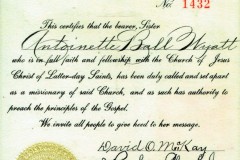 No. 1432
This certifies that the bearer, Sister
Antoinette Ball Wyatt
who is in full faith and fellowship with the Church of Jesus
Christ of Latter-day Saints, has been duly called and set apart
as a missionary of said Church, and as such has authority to
preach the principles of the Gospel.
We invite all people to give heed to her message.
David O. McKay